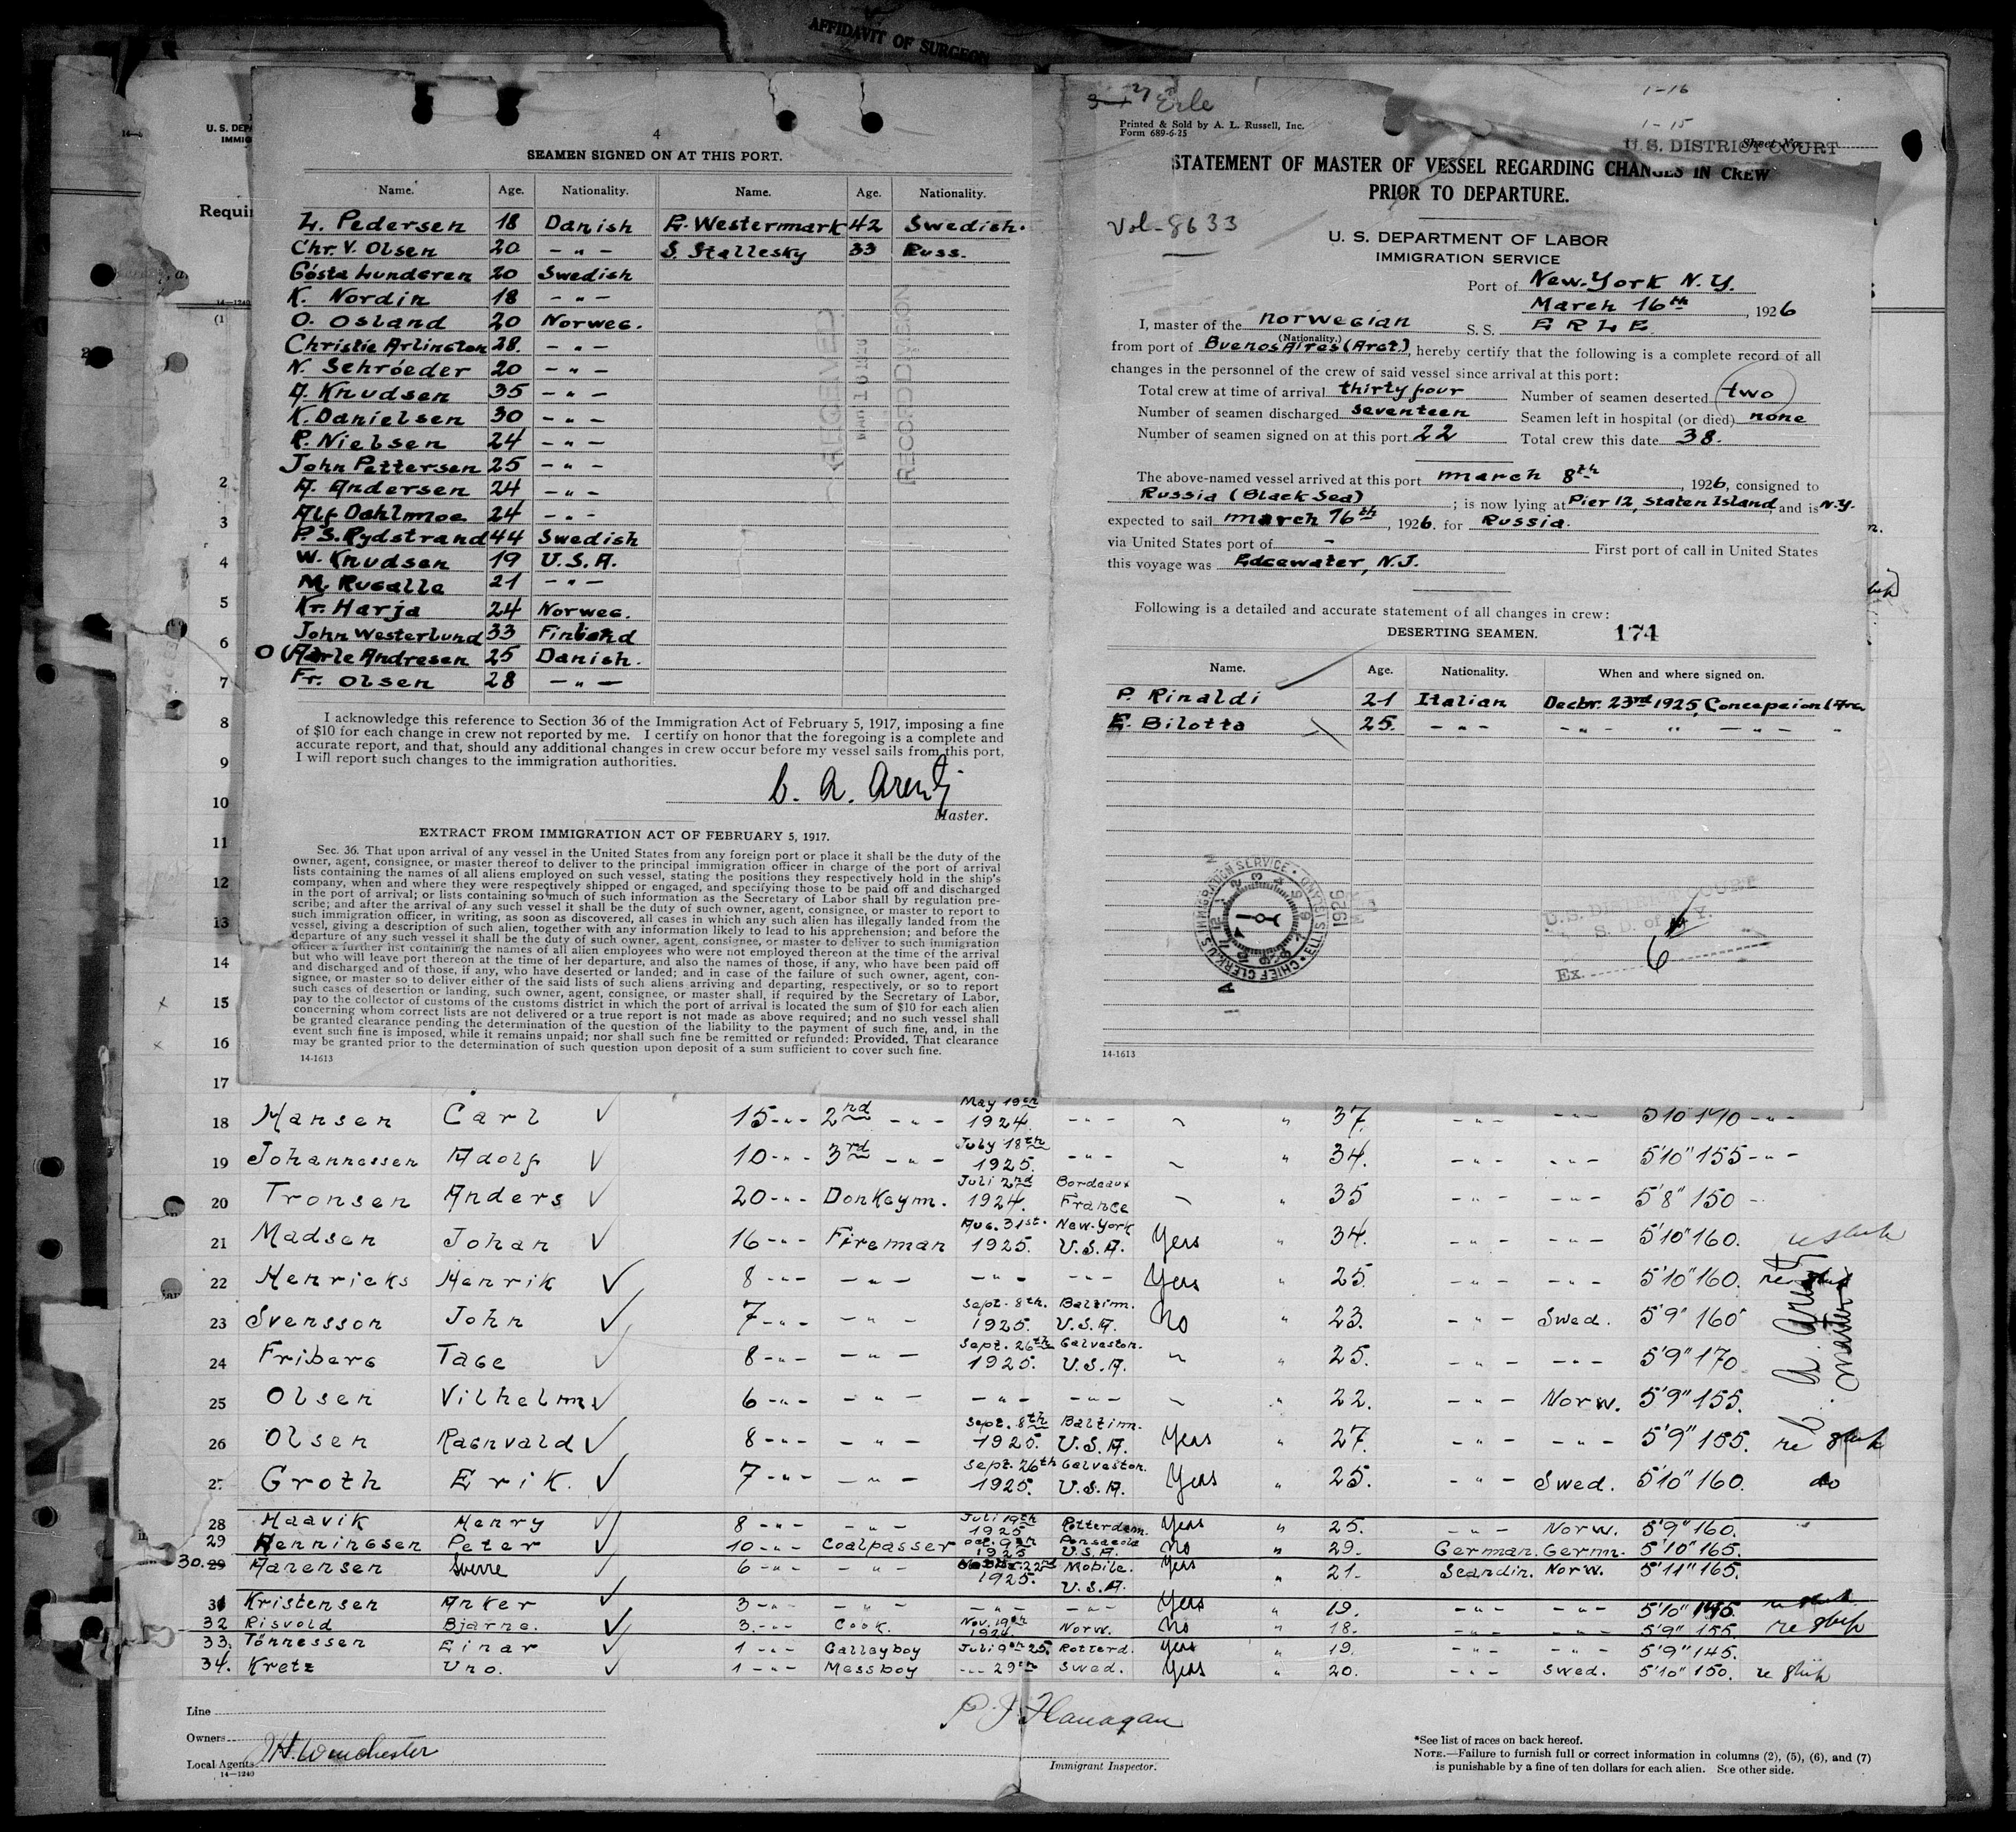 AFFIDAVIT OF SURGEON
4
SEAMEN SIGNED ON AT THIS PORT.
Name. Age. Nationality. Name. Age. Nationality.
L. Pedersen 18 Danish E. Westermark 42 Swedish.
Chr. V. Olsen 20 - " - S. Stallesky 33 Russ.
Gösta Lundgren 20 Swedish
K. Nordin 18 - " -
O. Osland 20 Norweg.
Christie Arlington 28. - " -
N. Schröeder 20 - " -
A. Knudsen 35 - " -
K. Danielsen 30 - " -
R. Nielsen 24 - " -
John Pettersen 25 - " -
A. Andersen 24 - " -
Alf Dahlmoe 24 - " -
P. S. Rydstrand 44 Swedish
W. Knudsen 19 U.S.A.
M. Rugalle 21 - " -
Kr. Harja 24 Norweg.
John Westerlund 33 Finland
Andresen 25 Danish.
Fr. Olsen 28 - " -
RECEIVED
RECORD DIVISION
I acknowledge this reference to Section 36 of the Immigration Act of February 5, 1917, imposing a fine
of $10 for each change in crew not reported by me. I certify on honor that the foregoing is a complete and
accurate report, and that, should any additional changes in crew occur before my vessel sails from this port,
I will report such changes to the immigration authorities.
Master.
EXTRACT FROM IMMIGRATION ACT OF FEBRUARY 5, 1917.
Sec. 36. That upon arrival of any vessel in the United States from any foreign port or place it shall be the duty of the
owner, agent, consignee, or master thereof to deliver to the principal immigration officer in charge of the port of arrival
lists containing the names of all aliens employed on such vessel, stating the positions they respectively hold in the ship's
company, when and where they were respectively shipped or engaged, and specifying those to be paid off and discharged
in the port of arrival; or lists containing so much of such information as the Secretary of Labor shall by regulation pre-
scribe; and after the arrival of any such vessel it shall be the duty of such owner, agent, consignee, or master to report to
such immigration officer, in writing, as soon as discovered, all cases in which any such alien has illegally landed from the
vessel, giving a description of such alien, together with any information likely to lead to his apprehension; and before the
departure of any such vessel it shall be the duty of such owner, agent, consignee, or master to deliver to such immigration
officer a further list containing the names of all alien employees who were not employed thereon at the time of the arrival
but who will leave port thereon at the time of her departure, and also the names of those, if any, who have been paid off
and discharged and of those, if any, who have deserted or landed; and in case of the failure of such owner, agent, con-
signee, or master so to deliver either of the said lists of such aliens arriving and departing, respectively, or so to report
such cases of desertion or landing, such owner, agent, consignee, or master shall, if required by the Secretary of Labor,
pay to the collector of customs of the customs district in which the port of arrival is located the sum of $10 for each alien
concerning whom correct lists are not delivered or a true report is not made as above required; and no such vessel shall
be granted clearance pending the determination of the question of the liability to the payment of such fine, and, in the
event such fine is imposed, while it remains unpaid; nor shall such fine be remitted or refunded: Provided, That clearance
may be granted prior to the determination of such question upon deposit of a sum sufficient to cover such fine.
14-1613
Erle
1-16
1-15
Printed & Sold by A. L. Russell, Inc.
Form 689-6-25
Sheet No.
U.S. DISTRICT COURT
STATEMENT OF MASTER OF VESSEL REGARDING CHANGES IN CREW
PRIOR TO DEPARTURE.
Vol-8633
U. S. DEPARTMENT OF LABOR
IMMIGRATION SERVICE
Port of New-York N.Y.
March 16th, 1926
I, master of the norwegian S. S. ERLE
(Nationality.)
from port of Buenos Aires (Argt.), hereby certify that the following is a complete record of all
changes in the personnel of the crew of said vessel since arrival at this port:
Total crew at time of arrival thirty four Number of seamen deserted two
Number of seamen discharged seventeen Seamen left in hospital (or died) none
Number of seamen signed on at this port 22 Total crew this date 38.
The above-named vessel arrived at this port march 8th, 1926, consigned to
Russia (Black Sea); is now lying at Pier 12, Staten Island, and is N.Y.
expected to sail march 16th, 1926. for Russia.
via United States port of - First port of call in United States
this voyage was Edgewater, N.J.
Following is a detailed and accurate statement of all changes in crew:
DESERTING SEAMEN. 174
Name. Age. Nationality. When and where signed on.
P. Rinaldi 21 Italian Decbr. 23rd 1925, Concepcion (Arg
E. Bilotta 25. - " - - " - " - " -
U.S. IMMIGRATION SERVICE · ELLIS ISLAND · CHIEF CLERK
1926
U.S. DISTRICT COURT
S. D. of N.Y.
Ex. 6
14-1613
U. S. DEPA
IMMIG
14-1240
Requir
(1
2
3
4
5
6
7
8
9
10
11
12
13
14
15
16
17
18 Hansen Carl 15 - " - 2nd - " - May 19th 1924. - " - 37. - " - - " - 5'10" 170 - " -
19 Johannessen Adolf 10 - " - 3rd - " - July 18th 1925. - " - " 34. - " - - " - 5'10" 155 - " -
20 Tronsen Anders 20 - " - Donkeym. Juli 2nd 1924. Bordeaux France " 35 - " - - " - 5'8" 150 -
21 Madsen Johan 16 - " - Fireman Aug. 31st. 1925. New-York U.S.A. Yes " 34. - " - - " - 5'10" 160.
22 Henricks Henrik 8 - " - - " - - " - - " - Yes " 25. - " - - " - 5'10" 160.
23 Svensson John 7 - " - - " - Sept. 8th. 1925. Baltim. U.S.A. No " 23. - " - Swed. 5'9" 160
24 Friberg Tage 8 - " - - " - Sept. 26th 1925. Galveston. U.S.A. " 25. - " - - " - 5'9" 170
25 Olsen Vilhelm 6 - " - - " - - " - - " - " 22. - " - Norw. 5'9" 155.
26 Olsen Ragnvald 8 - " - - " - Sept. 8th 1925. Baltim. U.S.A. Yes " 27. - " - - " - 5'9" 155.
27 Groth Erik. 7 - " - - " - Sept. 26th 1925. Galveston. U.S.A. Yes " 25. - " - Swed. 5'10" 160. do
28 Haavik Henry 8 - " - - " - Juli 19th 1925 Rotterdam. Yes " 25. - " - Norw. 5'9" 160.
29 Henningsen Peter 10 - " - Coalpasser Oct. 9th 1925 Pensacola U.S.A. No " 29. German. Germ. 5'10" 165.
30. 29 Aanensen Sverre 6 - " - - " - 22nd 1925. Mobile. U.S.A. Yes " 21. Scandin. Norw. 5'11" 165.
31 Kristensen Anker 3 - " - - " - - " - - " - Yes " 19. - " - - " - 5'10" 145.
32 Risvold Bjarne. 3. - " - Cook. Nov. 19th 1924 Norw. No " 18. - " - - " - 5'9" 155.
33. Tönnessen Einar 1 - " - Galleyboy Juli 9th 25. Rotterd. Yes " 19. - " - - " - 5'9" 145.
34. Kretz Uno. 1 - " - Messboy - " - 29th Swed. Yes " 20. - " - Swed. 5'10" 150.
Master
Line
Owners
Local Agents J.H. Winchester
14-1240
P J Flanagan
Immigrant Inspector.
*See list of races on back hereof.
NOTE.—Failure to furnish full or correct information in columns (2), (5), (6), and (7)
is punishable by a fine of ten dollars for each alien. See other side.